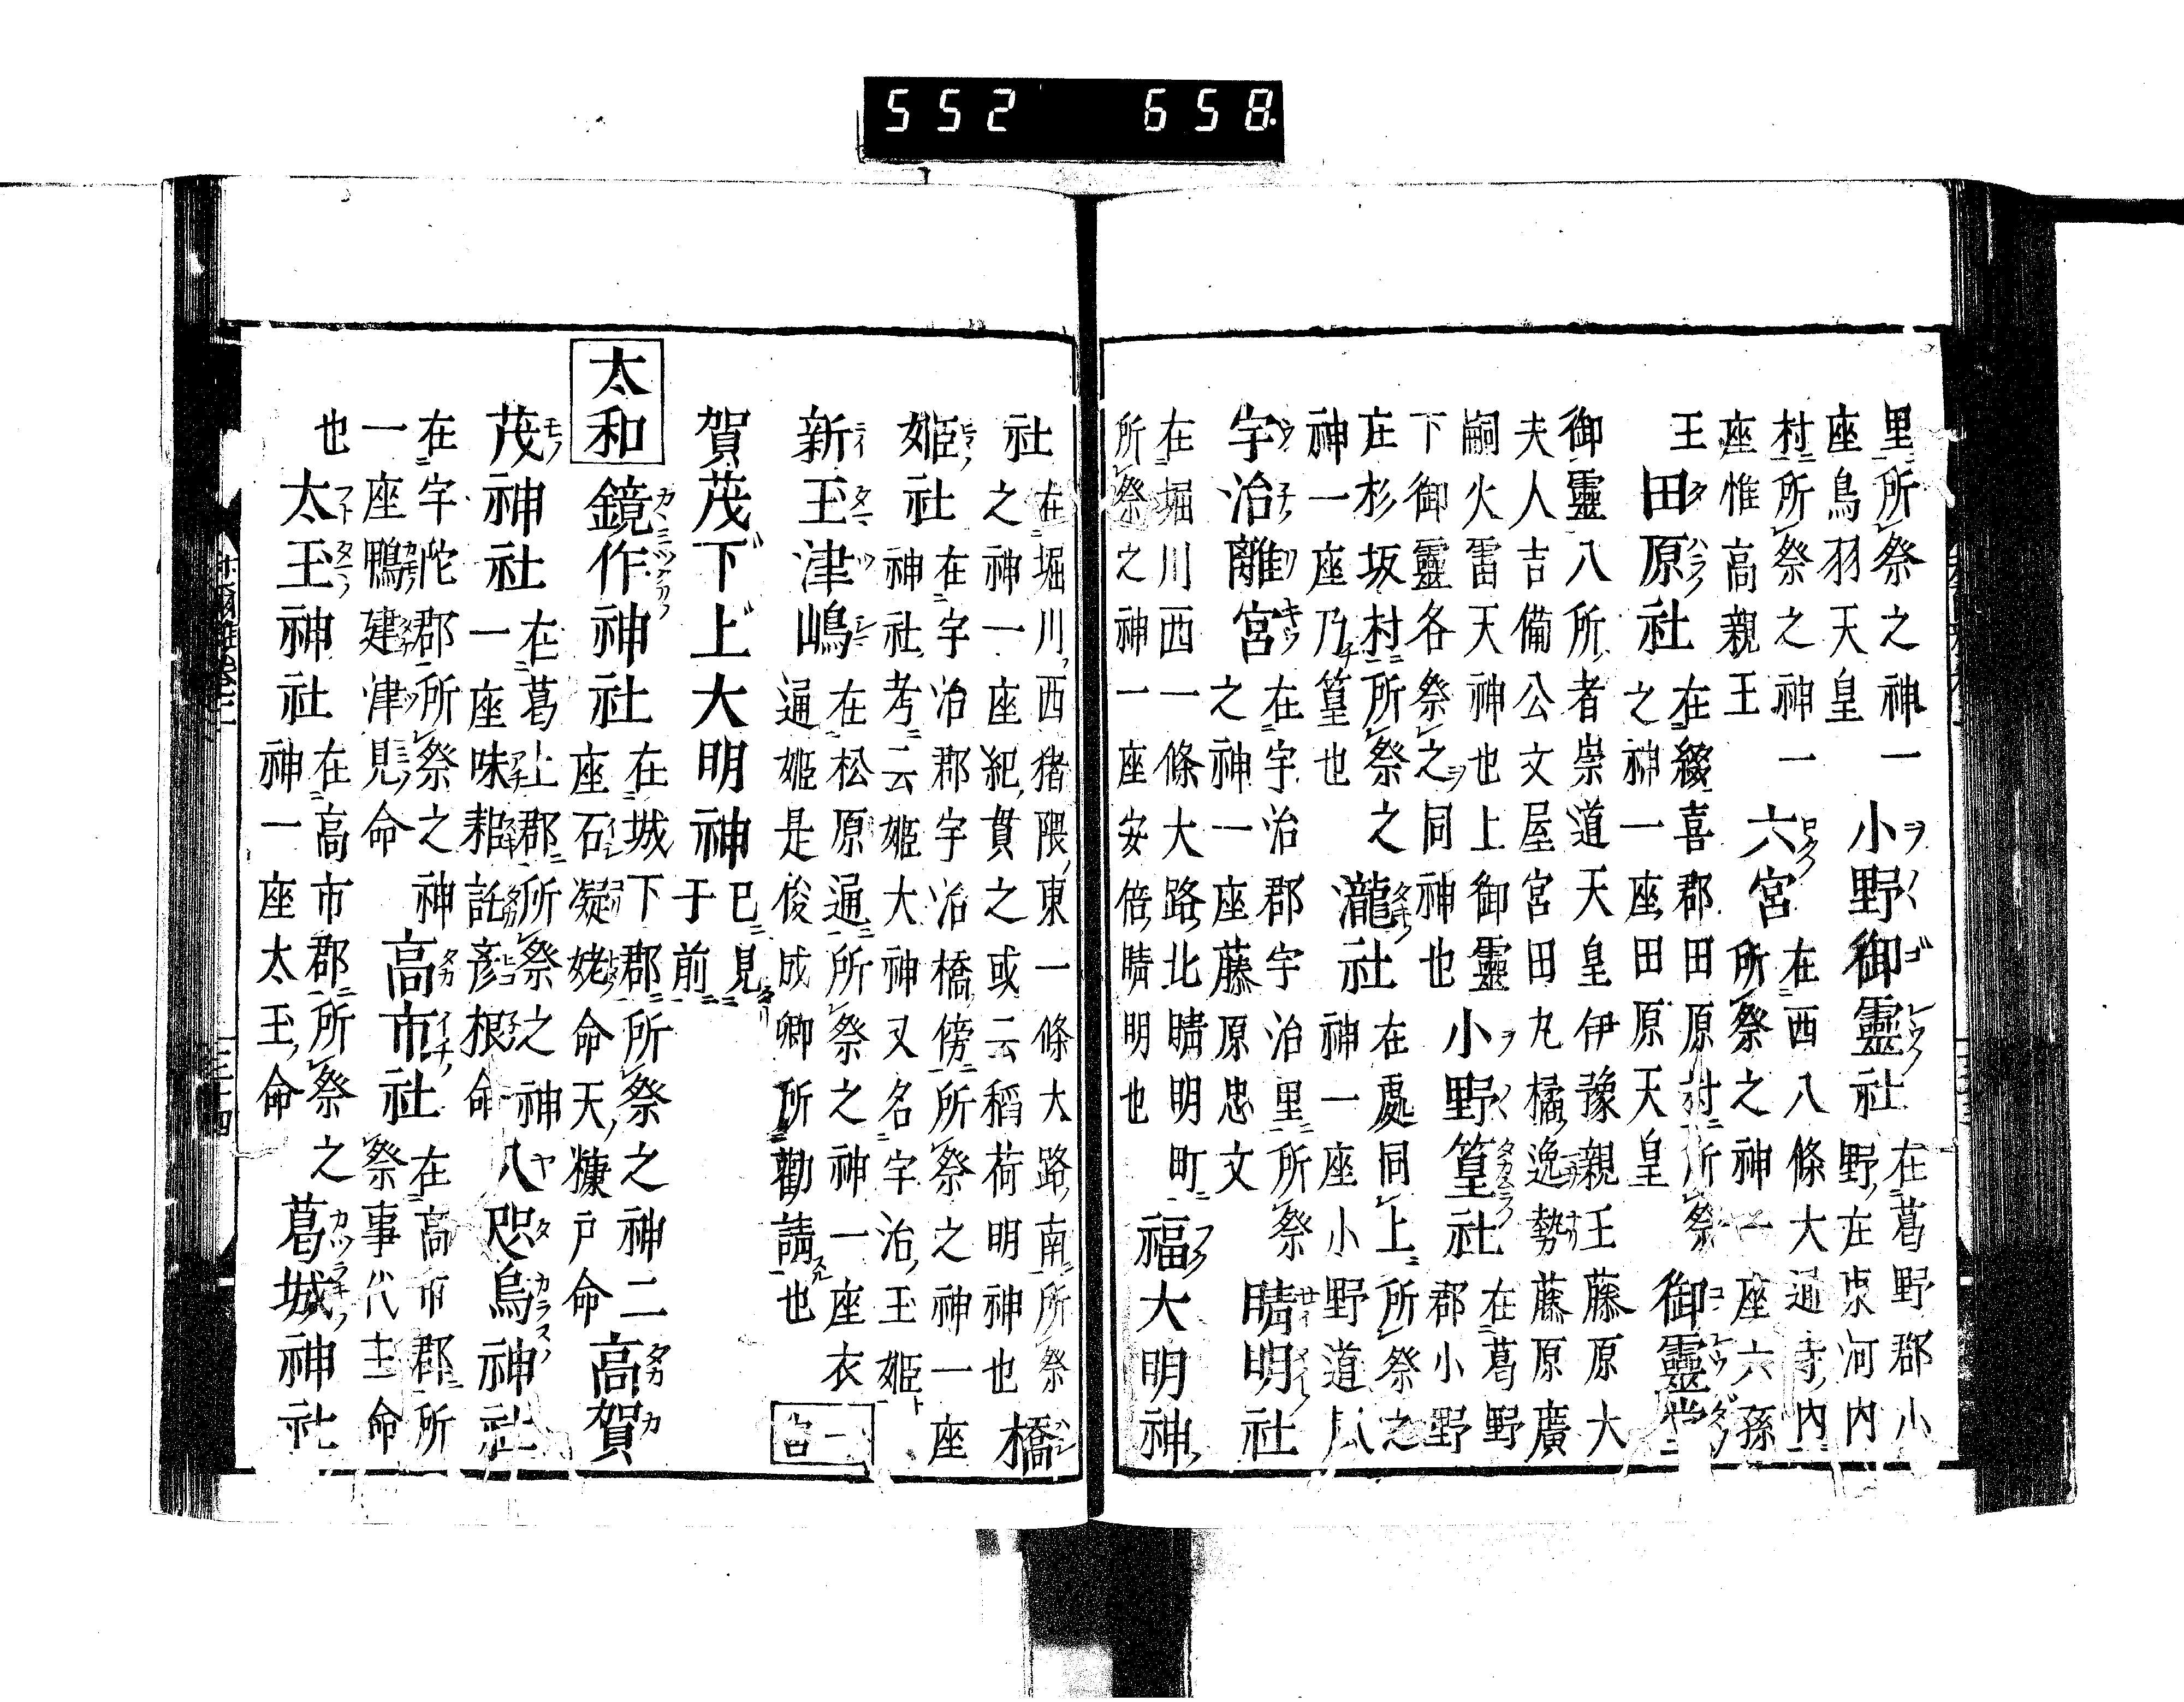 552 658.
里所祭之神一座鳥羽天皇
小野御靈社
在葛野郡小野在東河內
村所祭之神一座惟高親王
六宮
在西八條大通寺內所祭之神一座六孫王
田原社
在綴喜郡田原村所祭之神一座田原天皇
御靈堂
御靈八所者崇道天皇伊豫親王藤原大
夫人吉備公文屋宮田丸橘逸勢藤原廣
嗣火雷天神也上御靈
下御靈各祭之同神也
小野篁社
在葛野郡小野
庄杉坂村所祭之神一座乃篁也
瀧社
在處同上所祭之神一座小野道風
宇治離宮
在宇治郡宇治里所祭之神一座藤原忠文
晴明社
在堀川西一條大路北晴明町
所祭之神一座安倍晴明也
福大明神
社
在堀川西猪隈東一條大路南所祭
之神一座紀貫之或云稻荷明神也
橋
姬社
在宇治郡宇治橋傍所祭之神一座
神社考云姬大神又名宇治玉姬
新玉津嶋
在松原通所祭之神一座衣
通姬是俊成卿所勸請也
賀茂下上大明神
已見于前
太和
鏡作神社
在城下郡所祭之神二
座石凝姥命天糠戶命
高賀
茂神社
在葛上郡所祭之神
一座味耜託彥根命
八咫烏神社
在宇陀郡所祭之神
一座鴨建津見命
高市社
在高市郡所
祭事代主命
也
太玉神社
在高市郡所祭之
神一座太玉命
葛城神社